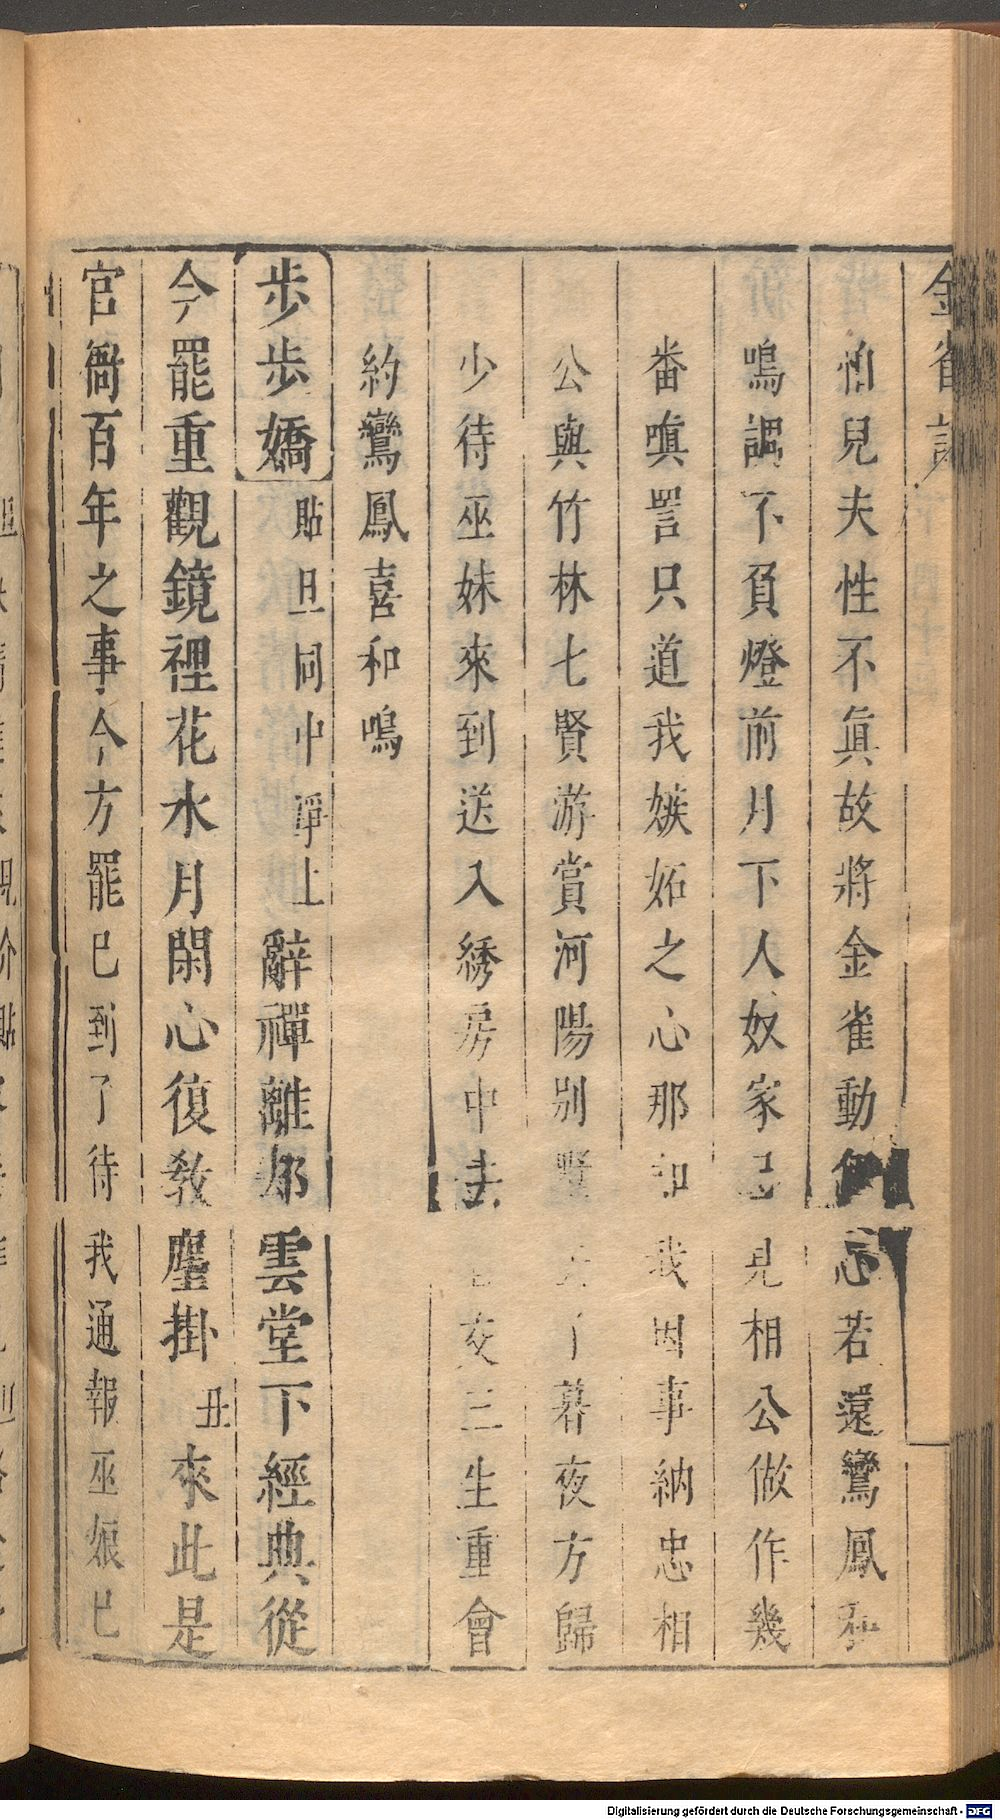 金雀記
怕兒夫性不眞故將金雀動伊心若還鸞鳳和
鳴調不負燈前月下人奴家已見相公做作幾
番嗔詈只道我嫉妬之心那知我因事納忠相
公與竹林七賢游賞河陽別墅去了暮夜方歸
少待巫妹來到送入綉房中去交三生重會
約鸞鳳喜和鳴
步步嬌 貼旦同中淨上 辭禪離那雲堂下經典從
今罷重觀鏡裡花水月閑心復教塵掛 丑 來此是
官衙百年之事今方罷巳到了待我通報巫娘巳
Digitalisierung gefördert durch die Deutsche Forschungsgemeinschaft - DFG